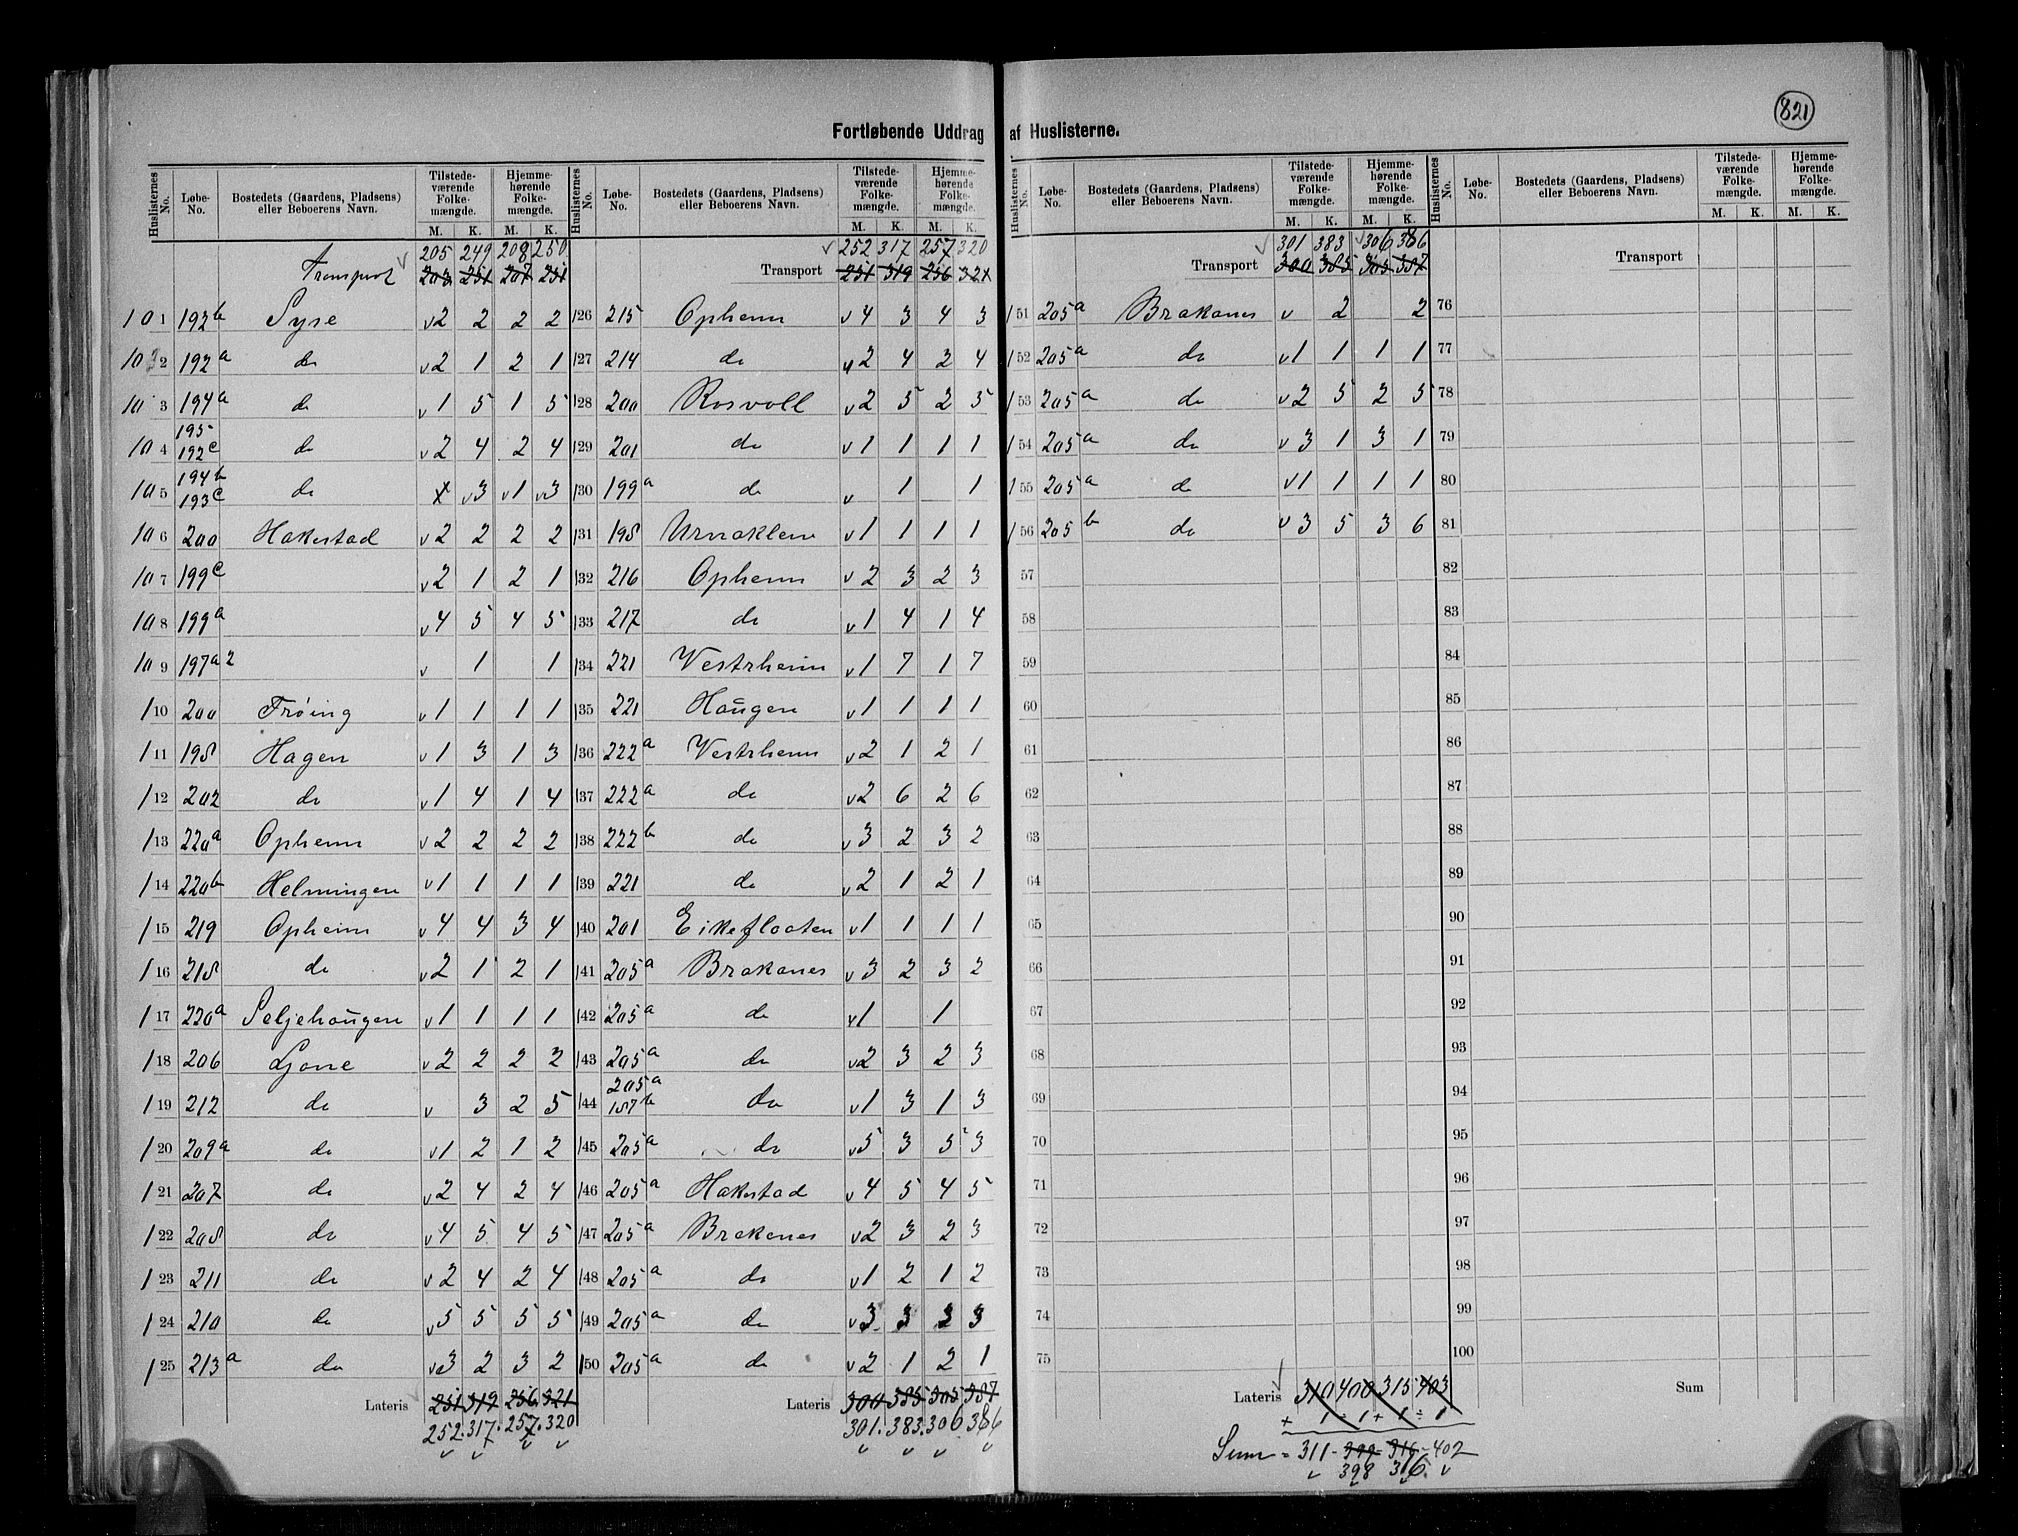 821
Fortløbende Uddrag af Huslisterne.
Huslisternes No. Løbe-No. Bostedets (Gaardens, Pladsens) eller Beboerens Navn. Tilstede-værende Folke-mængde. Hjemme-hørende Folke-mængde.
M. K. M. K.
205 249 208 250
Transport 203 251 207 251
101 192b Syse v2 2 2 2
102 192a do v2 1 2 1
103 194a do v1 5 1 5
104 195 192c do v2 4 2 4
105 194b 193c do x v3 v1 v3
106 200 Hakestad v2 2 2 2
107 199c v2 1 2 1
108 199a v4 5 4 5
109 197a2 v 1 1
110 200 Frøing v1 1 1 1
111 198 Hagen v1 3 1 3
112 202 do v1 4 1 4
113 220a Opheim v2 2 2 2
114 220b Helmingen v1 1 1 1
115 219 Opheim v4 4 3 4
116 218 do v2 1 2 1
117 220a Seljehaŭgen v1 1 1 1
118 206 Ljone v2 2 2 2
119 212 do v 3 2 5
120 209a do v1 2 1 2
121 207 do v2 4 2 4
122 208 do v4 5 4 5
123 211 do v2 4 2 4
124 210 do v5 5 5 5
125 213a do v3 2 3 2
Lateris 251 319 256 321
252. 317. 257. 320
Huslisternes No. Løbe-No. Bostedets (Gaardens, Pladsens) eller Beboerens Navn. Tilstede-værende Folke-mængde. Hjemme-hørende Folke-mængde.
M. K. M. K.
v 252 317 257 320
Transport 251 319 256 321
126 215 Opheim v4 3 4 3
127 214 do v2 4 2 4
128 200 Rosvoll v2 5 2 5
129 201 do v1 1 1 1
130 199a do v 1 1
131 198 Urnaklem v1 1 1 1
132 216 Opheim v2 3 2 3
133 217 do v1 4 1 4
134 221 Vestrheim v1 7 1 7
135 221 Haŭgen v1 1 1 1
136 222a Vestrheim v2 1 2 1
137 222a do v2 6 2 6
138 222b do v3 2 3 2
139 221 do v2 1 2 1
140 201 Eikeflaaten v1 1 1 1
141 205a Brakanes v3 2 3 2
142 205a do v1 1
143 205a do v2 3 2 3
144 205a 187b do v1 3 1 3
145 205a do v5 3 5 3
146 205a Hakestad v4 5 4 5
147 205a Brakanes v2 3 2 3
148 205a do v1 2 1 2
149 205a do v3 3 3 3
150 205a do v2 1 2 1
Lateris 300 385 305 387
301. 383. 306 386
Huslisternes No. Løbe-No. Bostedets (Gaardens, Pladsens) eller Beboerens Navn. Tilstede-værende Folke-mængde. Hjemme-hørende Folke-mængde.
M. K. M. K.
v 301 383 v306 386
Transport 300 385 305 387
151 205a Brakanes v 2 2
152 205a do v1 1 1 1
153 205a do v2 5 2 5
154 205a do v3 1 3 1
155 205a do v1 1 1 1
156 205b do v3 5 3 6
57
58
59
60
61
62
63
64
65
66
67
68
69
70
71
72
73
74
75
Lateris 310 400 315 403
+ 1 ÷ 1 + 1 ÷ 1
Sum = 311 - 399 - 316 - 402
398 316
Huslisternes No. Løbe-No. Bostedets (Gaardens, Pladsens) eller Beboerens Navn. Tilstede-værende Folke-mængde. Hjemme-hørende Folke-mængde.
M. K. M. K.
Transport
76
77
78
79
80
81
82
83
84
85
86
87
88
89
90
91
92
93
94
95
96
97
98
99
100
Sum